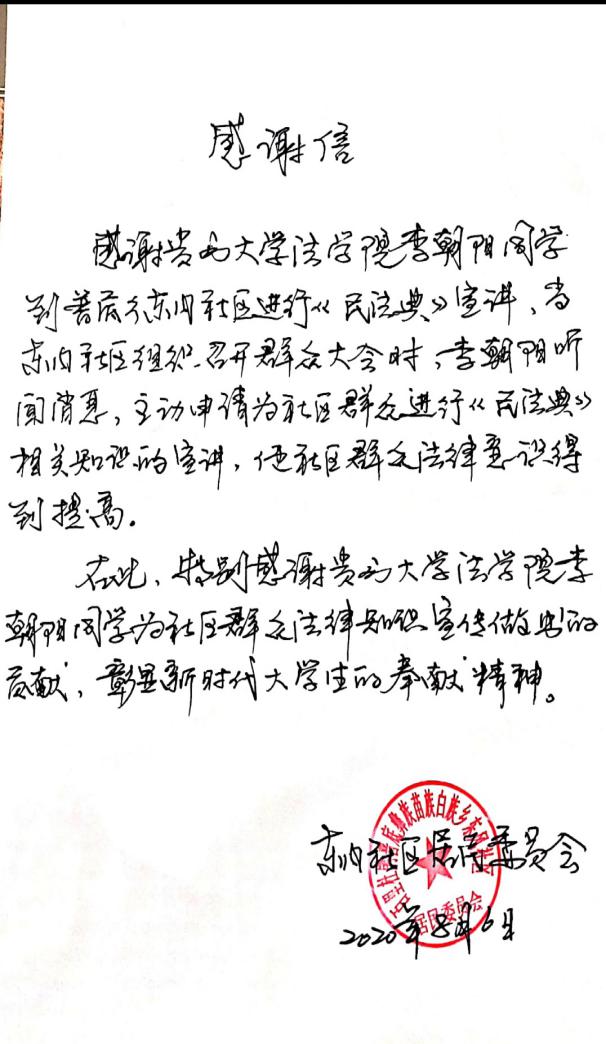 感谢信
感谢贵州大学法学院李朝阳同学
到普底乡东风社区进行《民法典》宣讲,当
东风社区组织召开群众大会时,李朝阳听
闻消息,主动申请为社区群众进行《民法典》
相关知识的宣讲,使社区群众法律意识得
到提高。
在此,特别感谢贵州大学法学院李
朝阳同学为社区群众法律知识宣传做出的
贡献,彰显新时代大学生的奉献精神。
东风社区居民委员会
2020年8月6日
彝族苗族白族乡东风社区
居民委员会